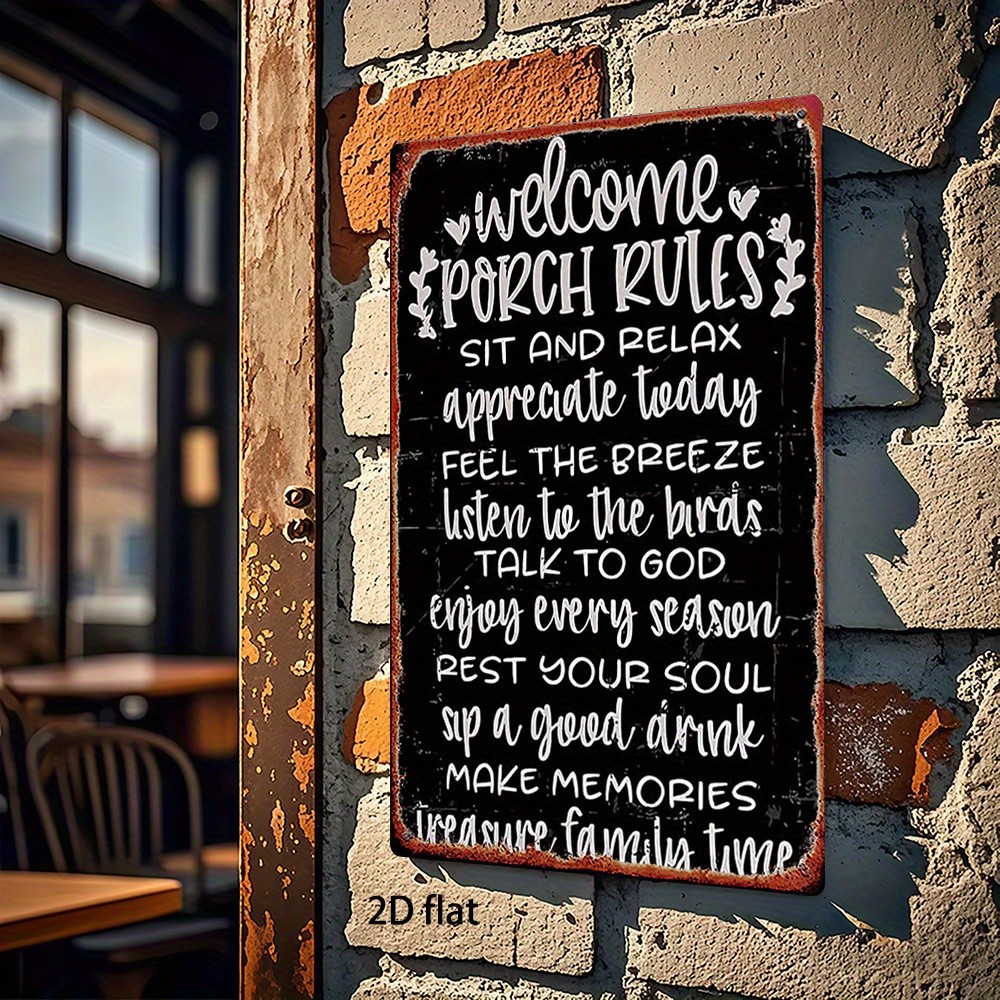 welcome
PORCH RULES
SIT AND RELAX
appreciate today
FEEL THE BREEZE
listen to the birds
TALK TO GOD
enjoy every season
REST YOUR SOUL
sip a good drink
MAKE MEMORIES
treasure family time
2D flat